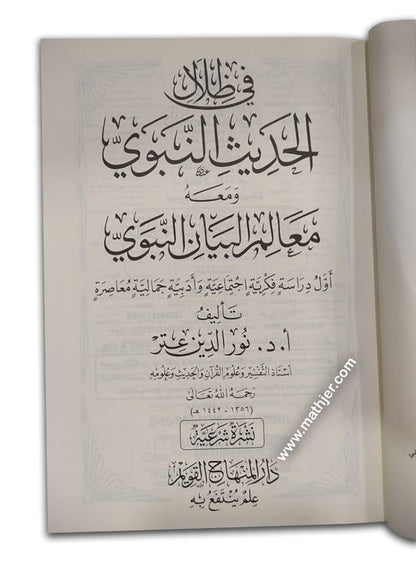 في ظلال
الحديث النبوي
ومعه
معالم البيان النبوي
أول دراسة فكرية اجتماعية وأدبية جمالية معاصرة
تأليف
أ.د. نور الدين عتر
أستاذ التفسير وعلوم القرآن والحديث وعلومه
رحمه الله تعالى
(١٣٥٦ - ١٤٤٢ هـ)
نشرة شرعية
دار المنهاج القويم
علم ينتفع به
www.mathjer.com